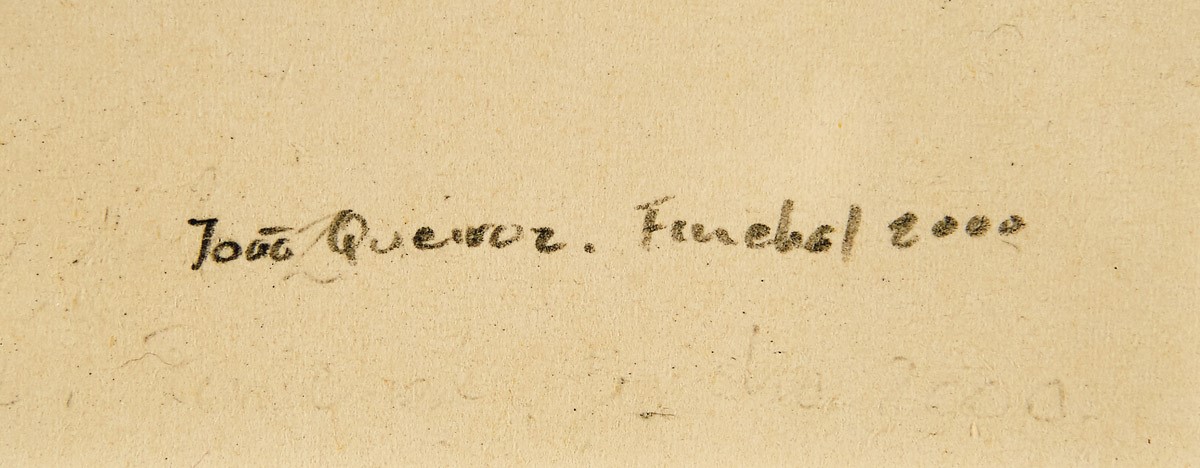 João Queiroz. Funchal 2000